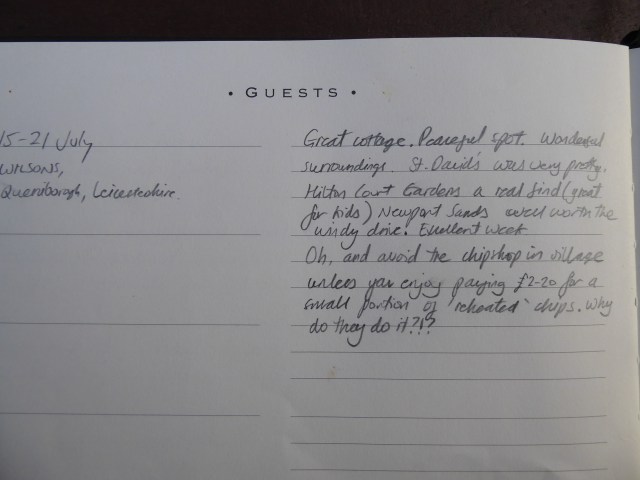 • GUESTS •
15-21 July
WILSONS,
Queniborough, Leicestershire.
Great cottage. Peaceful spot. Wonderful
surroundings. St. David's was very pretty.
Hilton Court Gardens a real find (great
for kids) Newport Sands well worth the
windy drive. Excellent week
Oh, and avoid the chipshop in village
unless you enjoy paying £2-20 for a
small portion of 'reheated' chips. Why
do they do it?!?